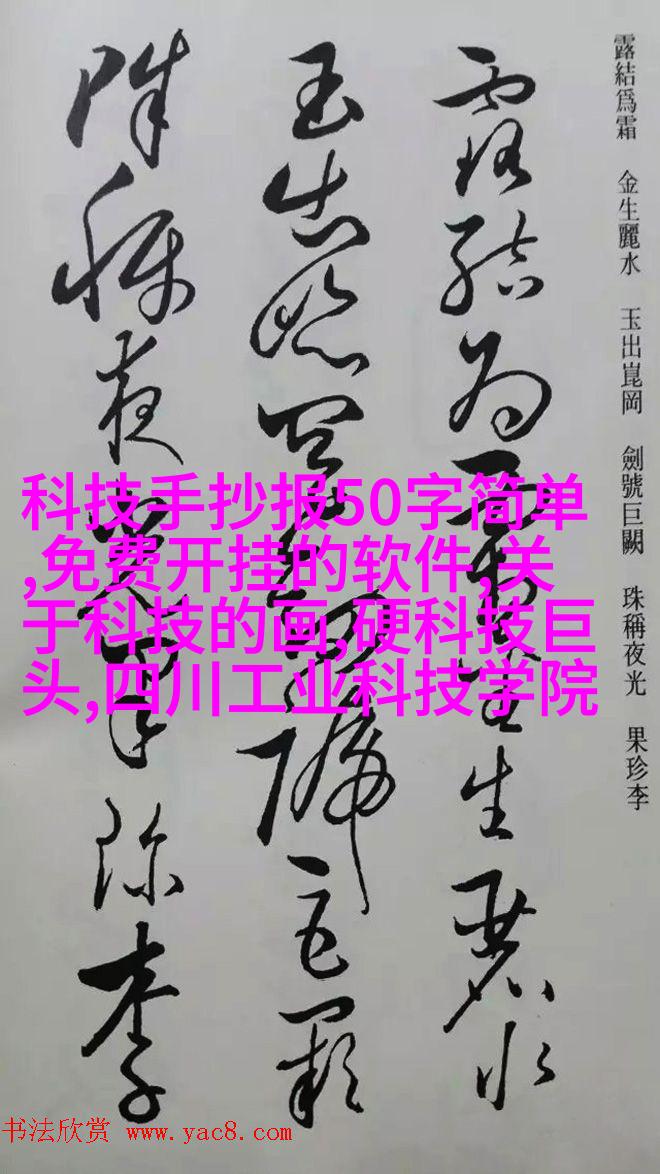 露結為霜 金生麗水 玉出崑岡 劍號巨闕 珠稱夜光 果珍李
露结为霜金生麗水
玉出崑岡劍號巨闕
珠稱夜光果珍李
科技手抄报50字简单
,免费开挂的软件,关
于科技的画,硬科技巨
头,四川工业科技学院
书法欣赏 www.yac8.com